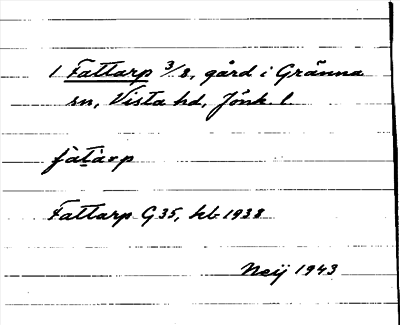 1 Fattarp 3/8, gård i Gränna
sn, Vista hd, Jönk. l
fàt̲àrp
Fattarp G35, hb 1938
Neij 1943